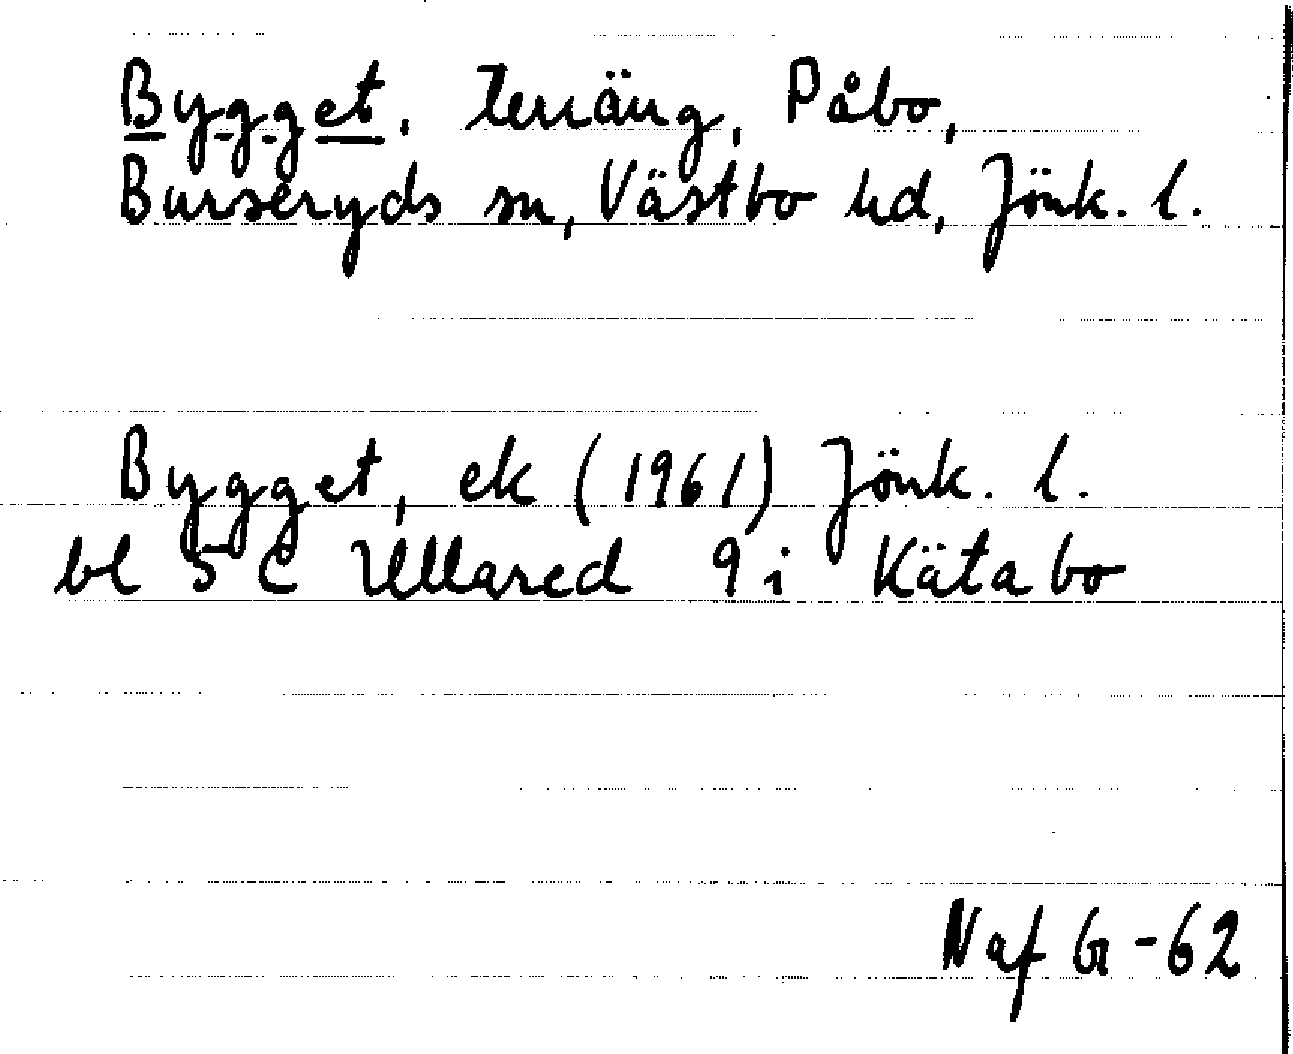 Bygget, terräng, Påbo,
Burseryds sn, Västbo hd, Jönk. l.
Bygget, ek (1961) Jönk. l.
bl 5 C Ullared 9 i Kätabo
Naf G-62